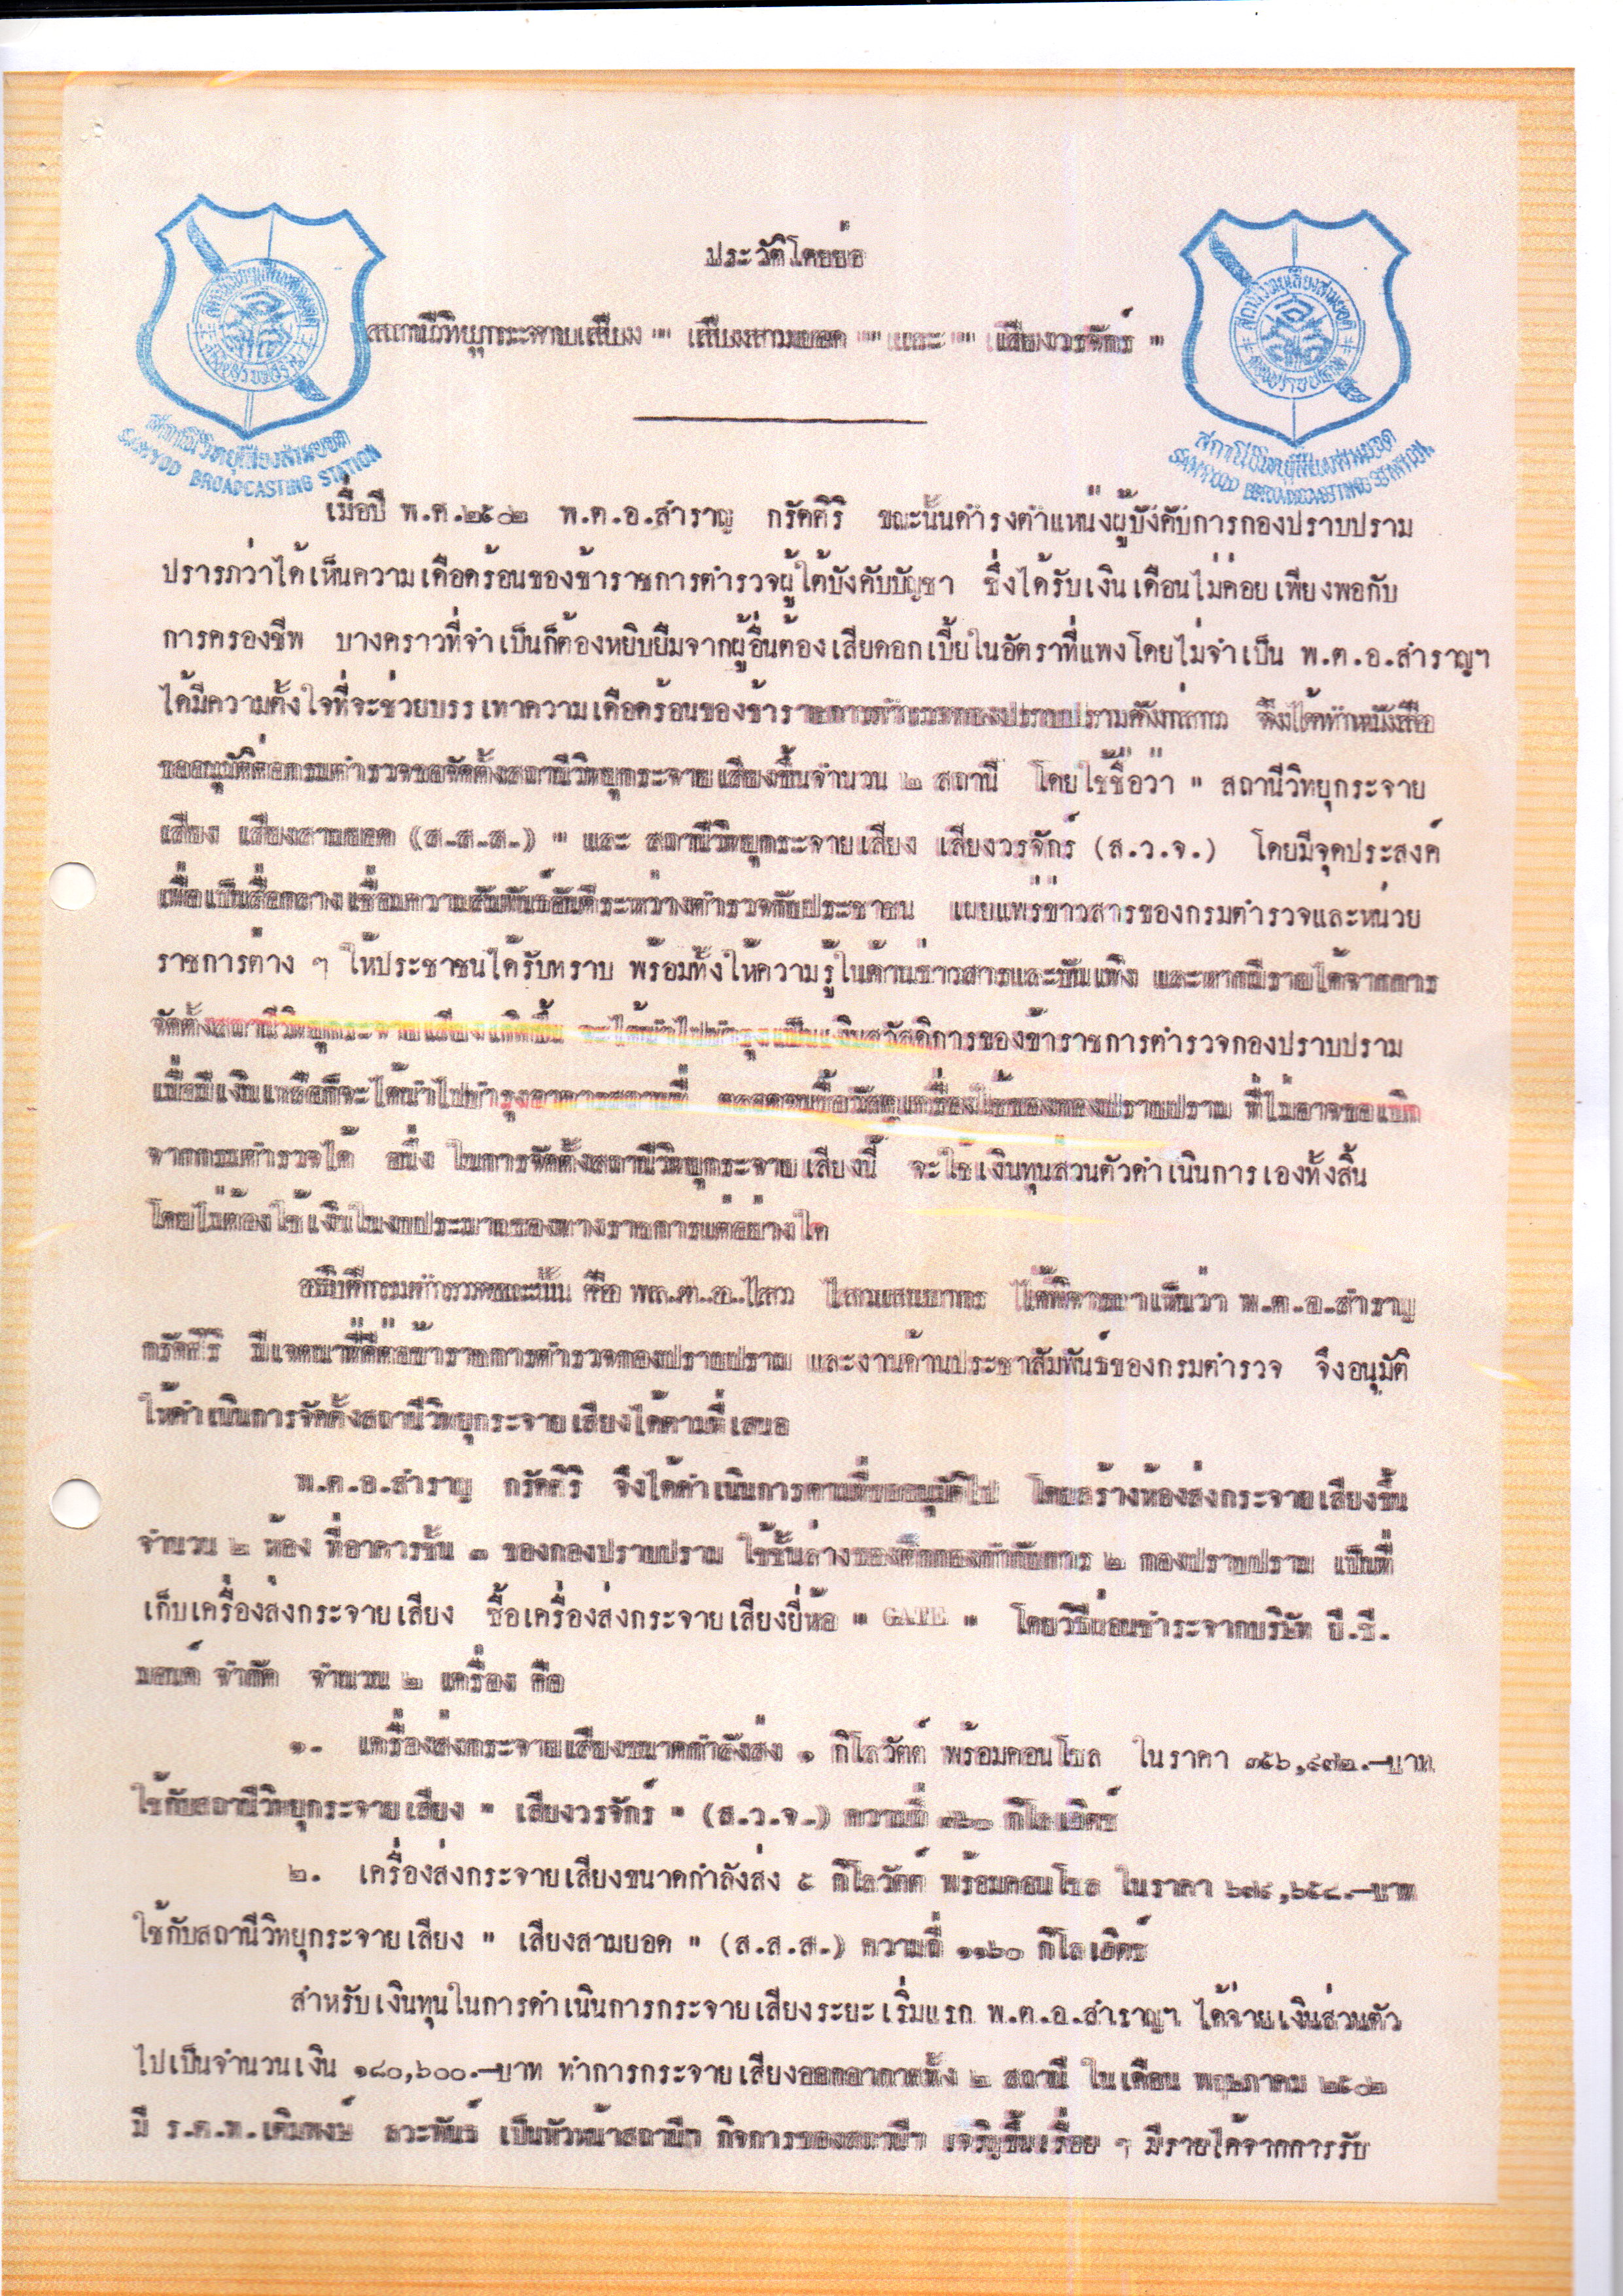 ประวัติโดยย่อ
สถานีวิทยุกระจายเสียง " เสียงสามยอด " และ " เสียงวรจักร์ "
สถานีวิทยุเสียงสามยอด
SAMYOD BROADCASTING STATION
สถานีวิทยุเสียงสามยอด
SAMYOD BROADCASTING STATION
เมื่อปี พ.ศ.๒๕๐๒ พ.ต.อ.สำราญ กรัดศิริ ขณะนั้นดำรงตำแหน่งผู้บังคับการกองปราบปราม
ปรารภว่าได้เห็นความเดือดร้อนของข้าราชการตำรวจผู้ใต้บังคับบัญชา ซึ่งได้รับเงินเดือนไม่ค่อยเพียงพอกับ
การครองชีพ บางคราวที่จำเป็นก็ต้องหยิบยืมจากผู้อื่นต้องเสียดอกเบี้ยในอัตราที่แพงโดยไม่จำเป็น พ.ต.อ.สำราญฯ
ได้มีความตั้งใจที่จะช่วยบรรเทาความเดือดร้อนของข้าราชการตำรวจกองปราบปรามดังกล่าว จึงได้ทำหนังสือ
ขออนุมัติต่อกรมตำรวจขอจัดตั้งสถานีวิทยุกระจายเสียงขึ้นจำนวน ๒ สถานี โดยใช้ชื่อว่า " สถานีวิทยุกระจาย
เสียง เสียงสามยอด (ส.ส.ส.) " และ สถานีวิทยุกระจายเสียง เสียงวรจักร์ (ส.ว.จ.) โดยมีจุดประสงค์
เพื่อเป็นสื่อกลางเชื่อมความสัมพันธ์อันดีระหว่างตำรวจกับประชาชน เผยแพร่ข่าวสารของกรมตำรวจและหน่วย
ราชการต่าง ๆ ให้ประชาชนได้รับทราบ พร้อมทั้งให้ความรู้ในด้านข่าวสารและบันเทิง และหากมีรายได้จากการ
จัดตั้งสถานีวิทยุกระจายเสียงเกิดขึ้น จะได้นำไปบำรุงเป็นเงินสวัสดิการของข้าราชการตำรวจกองปราบปราม
เมื่อมีเงินเหลือก็จะได้นำไปบำรุงอาคารสถานที่ ตลอดจนซื้อวัสดุเครื่องใช้ของกองปราบปราม ที่ไม่อาจขอเบิก
จากกรมตำรวจได้ อนึ่ง ในการจัดตั้งสถานีวิทยุกระจายเสียงนี้ จะใช้เงินทุนส่วนตัวดำเนินการเองทั้งสิ้น
โดยไม่ต้องใช้เงินในงบประมาณของทางราชการแต่อย่างใด
อธิบดีกรมตำรวจขณะนั้น คือ พล.ต.อ.ไสว ไสวแสนยากร ได้พิจารณาเห็นว่า พ.ต.อ.สำราญ
กรัดศิริ มีเจตนาที่ดีต่อข้าราชการตำรวจกองปราบปราม และงานด้านประชาสัมพันธ์ของกรมตำรวจ จึงอนุมัติ
ให้ดำเนินการจัดตั้งสถานีวิทยุกระจายเสียงได้ตามที่เสนอ
พ.ต.อ.สำราญ กรัดศิริ จึงได้ดำเนินการตามที่ขออนุมัติไป โดยสร้างห้องส่งกระจายเสียงขึ้น
จำนวน ๒ ห้อง ที่อาคารชั้น ๓ ของกองปราบปราม ใช้ชั้นล่างของตึกกองกำกับการ ๒ กองปราบปราม เป็นที่
เก็บเครื่องส่งกระจายเสียง ซื้อเครื่องส่งกระจายเสียงยี่ห้อ " GATE " โดยวิธีผ่อนชำระจากบริษัท ยี.ซี.
มอนด์ จำกัด จำนวน ๒ เครื่อง คือ
๑. เครื่องส่งกระจายเสียงขนาดกำลังส่ง ๑ กิโลวัตต์ พร้อมคอนโซล ในราคา ๓๕๖,๔๗๒.-บาท
ใช้กับสถานีวิทยุกระจายเสียง " เสียงวรจักร์ " (ส.ว.จ.) ความถี่ กิโลเฮิตซ์
๒. เครื่องส่งกระจายเสียงขนาดกำลังส่ง ๕ กิโลวัตต์ พร้อมคอนโซล ในราคา บาท
ใช้กับสถานีวิทยุกระจายเสียง " เสียงสามยอด " (ส.ส.ส.) ความถี่ ๑๑๖๐ กิโลเฮิตซ์
สำหรับเงินทุนในการดำเนินการกระจายเสียงระยะเริ่มแรก พ.ต.อ.สำราญฯ ได้จ่ายเงินส่วนตัว
ไปเป็นจำนวนเงิน ๑๘๐,๖๐๐.-บาท ทำการกระจายเสียงออกอากาศทั้ง ๒ สถานี ในเดือน พฤษภาคม ๒๕๐๒
มี ร.ต.ท.เติมพงษ์ เป็นหัวหน้าสถานีฯ กิจการของสถานีฯ เจริญขึ้นเรื่อย ๆ มีรายได้จากการรับ